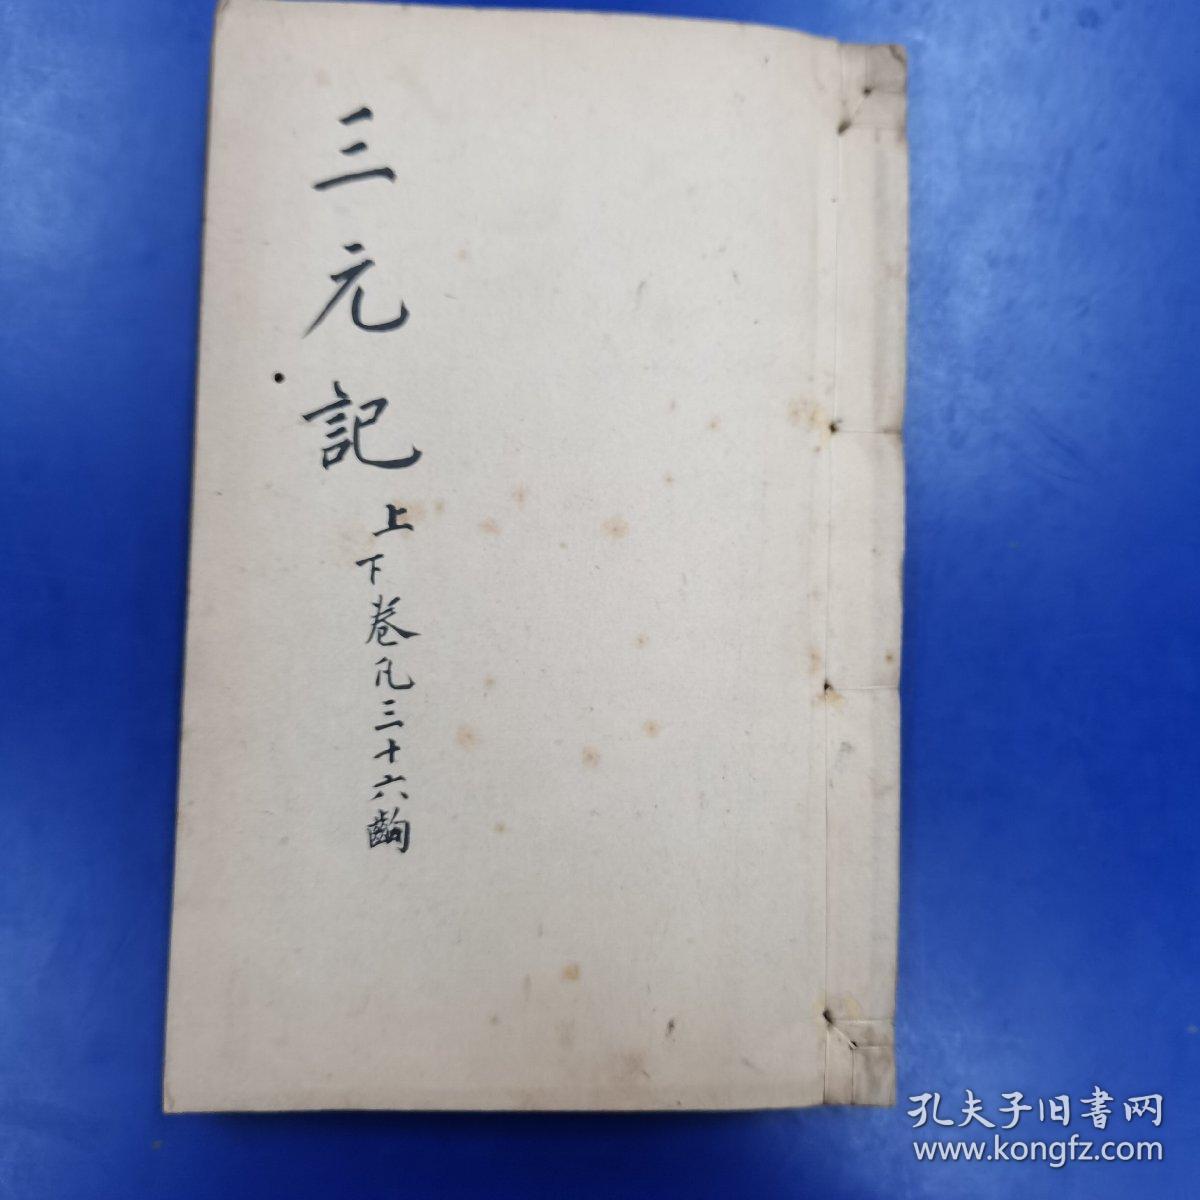 三元記
上下卷凡三十六齣
孔夫子旧書网
www.kongfz.com